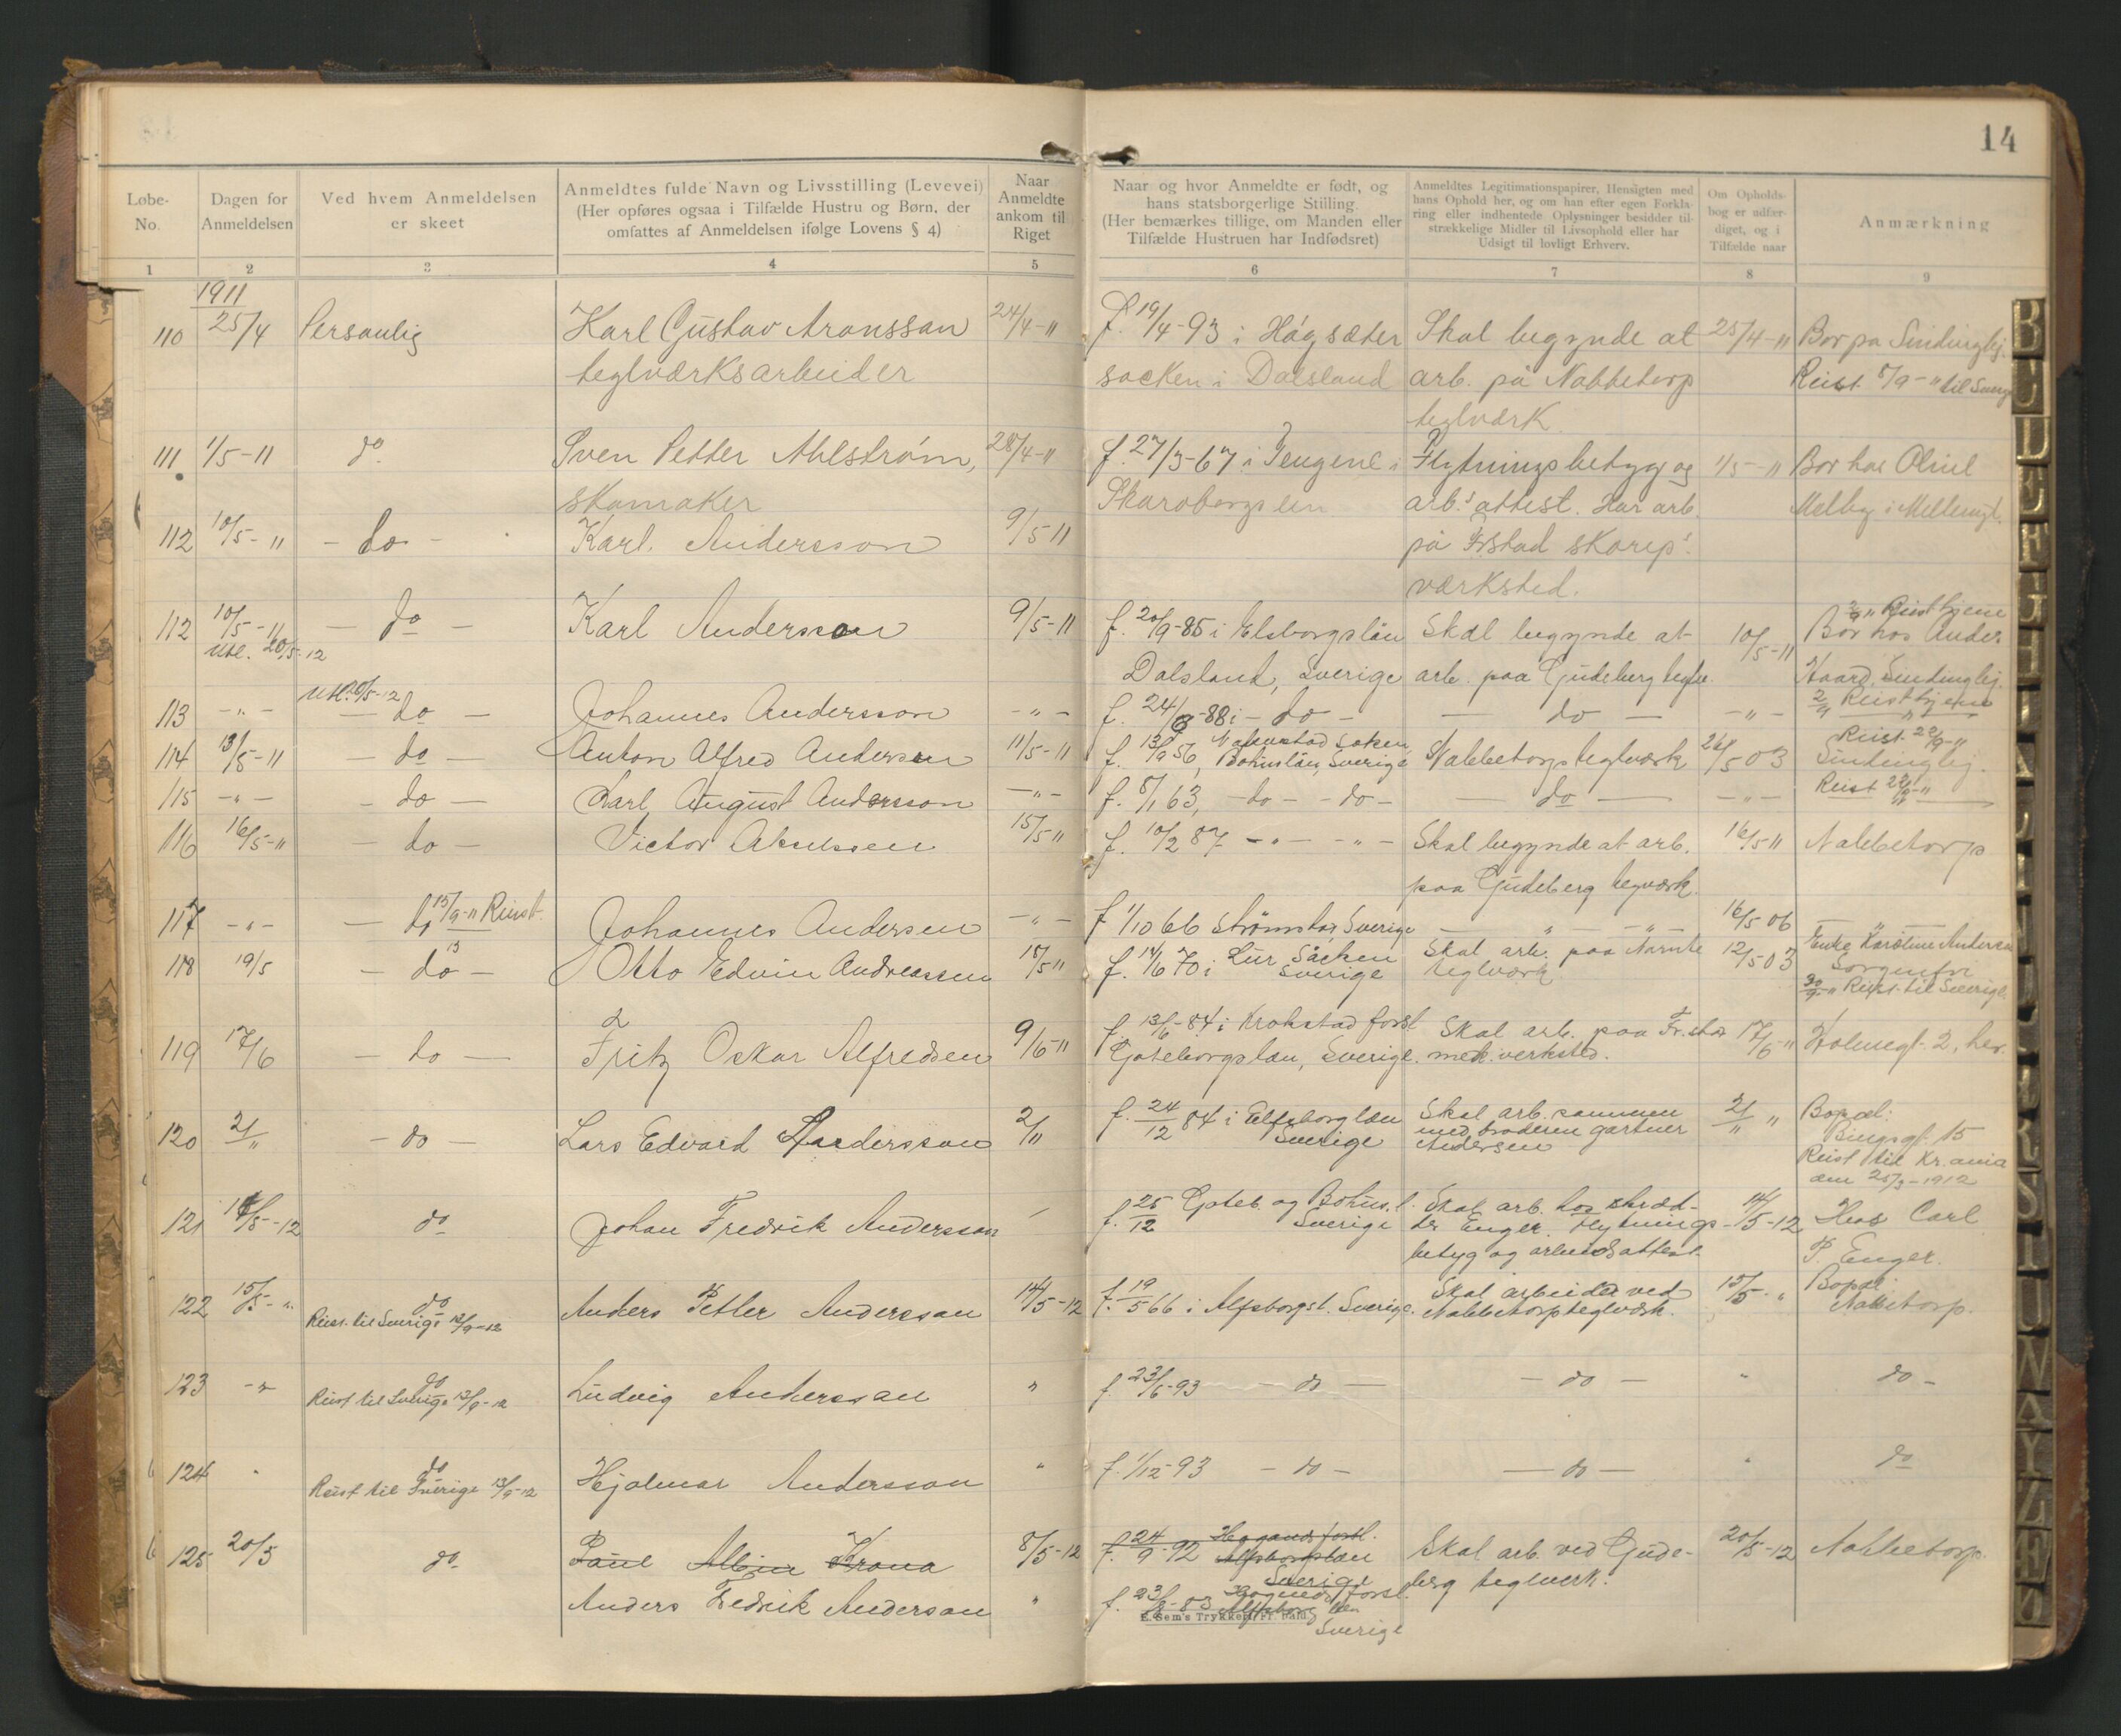 14
Løbe-No.
Dagen for Anmeldelsen
Ved hvem Anmeldelsen er skeet
Anmeldtes fulde Navn og Livsstilling (Levevei)
(Her opføres ogsaa i Tilfælde Hustru og Børn, der
omfattes af Anmeldelsen ifølge Lovens § 4)
Naar Anmeldte ankom til Riget
Naar og hvor Anmeldte er født, og
hans statsborgerlige Stilling.
(Her bemærkes tillige, om Manden eller
Tilfælde Hustruen har Indfødsret)
Anmeldtes Legitimationspapirer, Hensigten med
hans Ophold her, og om han efter egen Forkla-
ring eller indhentede Oplysninger besidder til-
strækkelige Midler til Livsophold eller har
Udsigt til lovligt Erhverv.
Om Opholds-
bog er udfær-
diget, og i
Tilfælde naar
Anmærkning
1 2 3 4 5 6 7 8 9
1911
110 25/4 Personlig Karl Gustav Aronsson 24/4-11 f. 19/4-93 i Högsæter Skal begynde at 25/4-11 Bor pa
teglværksarbeider socken i Dalsland arb. på Nabbetorp Reist 8/9-" til
teglværk
111 1/5-11 do. Sven Petter Ahlstrøm, 28/4-11 f. 27/3-67 i Flytningsbetyg og 1/5-11 Bor hos
skomaker Skaraborgs len arb.s attest. Har arb. Melby i
112 10/5-11 - do - Karl. Andersson 9/5-11 på Frstad skorep.
værksted.
112 10/5-11 - do - Karl Andersson 9/5-11 f. 20/9-85 i Elsborgslän Skal begynde at 10/5-11 Reist hjem
Bor hos Anders
20/5-12 Dalsland, Sverige arb. paa Gudeberg teglv.
113 -"- - do - Johannes Andersson -"- f. 24/8-88 i - do - - do - -"- Reist hjem
114 13/5-11 - do - Anton Alfred Andersen 11/5-11 f. 13/9 56, Sverige Nabbetorp teglværk 26/5 03 Reist 22/9-"
115 -"- - do - Karl August Andersson -"- f. 8/1 63, -do- -do- - do - -"- Reist 22/9-"
116 16/5-11 - do - Victor 15/5 11 f. 10/2 87 -"- -"- Skal begynde at arb. 16/5 11 Nabbetorp
paa Gudeberg tegværk.
117 -"- - do 15/9-11 Reist Johannes Andersen -"- f 1/10 66 Strømstad Sverige -"- -"- 16/5 06 -"-
118 19/5 - do - Otto Edvin Andreassen 18/5 11 f. 14/6 70 i Lur Säcken Skal arb. paa 12/5 03 Enke Karoline Andersen
Sverige teglværk Sorgenfri
Reist til Sverige
119 17/6 - do - Fritz Oskar Alfredsen 9/6-11 f. 13/6-84 i Krokstad forsl. Skal arb. paa Fr.stad 17/6-11 Holmegt. 2, her.
Gøteborgslän, Sverige. mek. verksted.
120 2/11 - do - Lars Edvard Andersson 2/11 f. 24/12 84 i Elfsborg län Skal arb. sammen 2/11 " Bopæl:
Sverige med broderen gartner Bingsgt. 15
Andersen Reist til Kr.ania
den 25/3-1912
121 14/5-12 do Johan Fredrik Andersson f. 25/12 Goteb. og Bohus. l. Skal arb. hos skræd- 14/5-12 Hos Carl
Sverige der Enger. Flytnings- P. Enger.
betyg og arbeidsattest.
122 15/5-" do Anders Petter Andersson 14/5-12 f. 19/5 66 i Alfsborgsl. Sverige. Skal arbeider ved 15/5-" Bopæl
Reist til Sverige 13/9-12 Nabbetorp teglværk. Nabbetorp.
123 -"- do Ludvig Andersson " f. 23/6-93 - do - - do - " do -
Reist til Sverige 13/9-12
124 " do Hjalmar Andersson " f. 1/12-93 - do - - do - " do
Reist til Sverige 13/9-12
125 20/5 do Paul Albin Krona 8/5-12 f. 24/9-92 Alfsborgslän Skal arb. ved Gude- 20/5-12 Nabbetorp.
Sverige berg teglverk.
Anders Fredrik Anderson " f. 23/8-83 Alfsborg län
Sverige
E. Sem's Trykkeri, Fr.hald